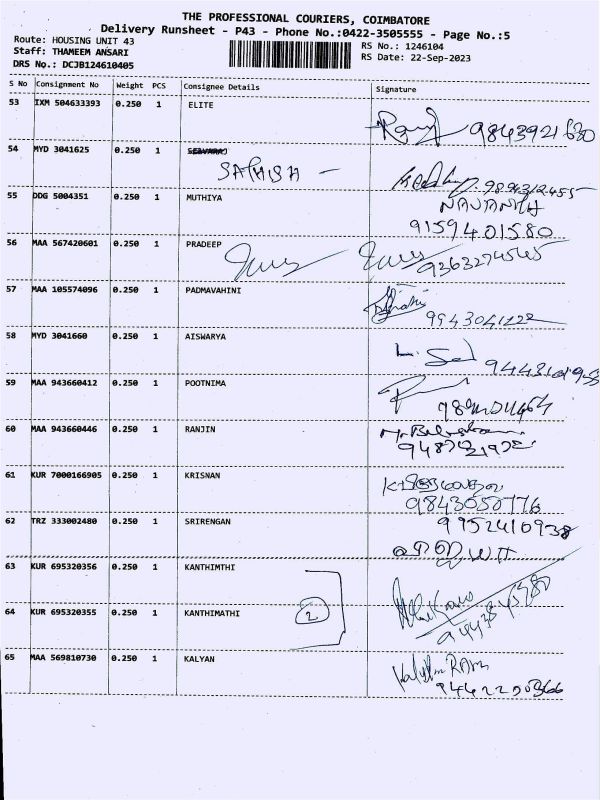 THE PROFESSIONAL COURIERS, COIMBATORE
Delivery Runsheet - P43 - Phone No.:0422-3505555 - Page No.:5
Route: HOUSING UNIT 43
Staff: THAMEEM ANSARI
DRS No.: DCJB124610405
RS No.: 1246104
RS Date: 22-Sep-2023
S No Consignment No Weight PCS Consignee Details Signature
53 IXM 504633393 0.250 1 ELITE
9843921630
54 MYD 3041625 0.250 1
SATHISH -
9894312455
55 DDG 5004351 0.250 1 MUTHIYA NAVANITH
9159401580
56 MAA 567420601 0.250 1 PRADEEP
9363274545
57 MAA 105574096 0.250 1 PADMAVAHINI
9943041222
58 MYD 3041660 0.250 1 AISWARYA
59 MAA 943660412 0.250 1 POOTNIMA
60 MAA 943660446 0.250 1 RANJIN
61 KUR 7000166905 0.250 1 KRISNAN
9843050776
62 TRZ 333002480 0.250 1 SRIRENGAN 9952410938
63 KUR 695320356 0.250 1 KANTHIMTHI
2
64 KUR 695320355 0.250 1 KANTHIMATHI
65 MAA 569810730 0.250 1 KALYAN Kalyan RAM